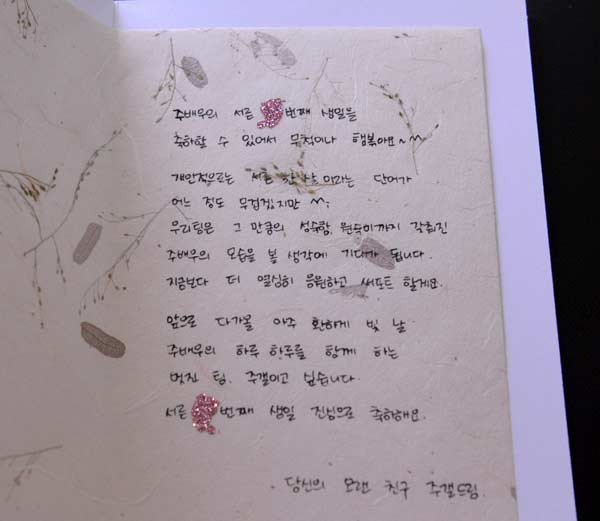 주배우의 서른 번째 생일을
축하할 수 있어서 무척이나 행복해요~^^
개인적으로는 서른 한 살 이라는 단어가
어느 정도 무겁겠지만 ^^;
우리팀은 그 만큼의 성숙함, 원숙미까지 갖춰진
주배우의 모습을 볼 생각에 기대가 됩니다.
지금보다 더 열심히 응원하고 써포트 할게요.
앞으로 다가올 아주 환하게 빛 날
주배우의 하루 하루를 함께 하는
멋진 팀. 주갤이고 싶습니다.
서른 번째 생일 진심으로 축하해요.
당신의 오랜 친구 주갤드림.